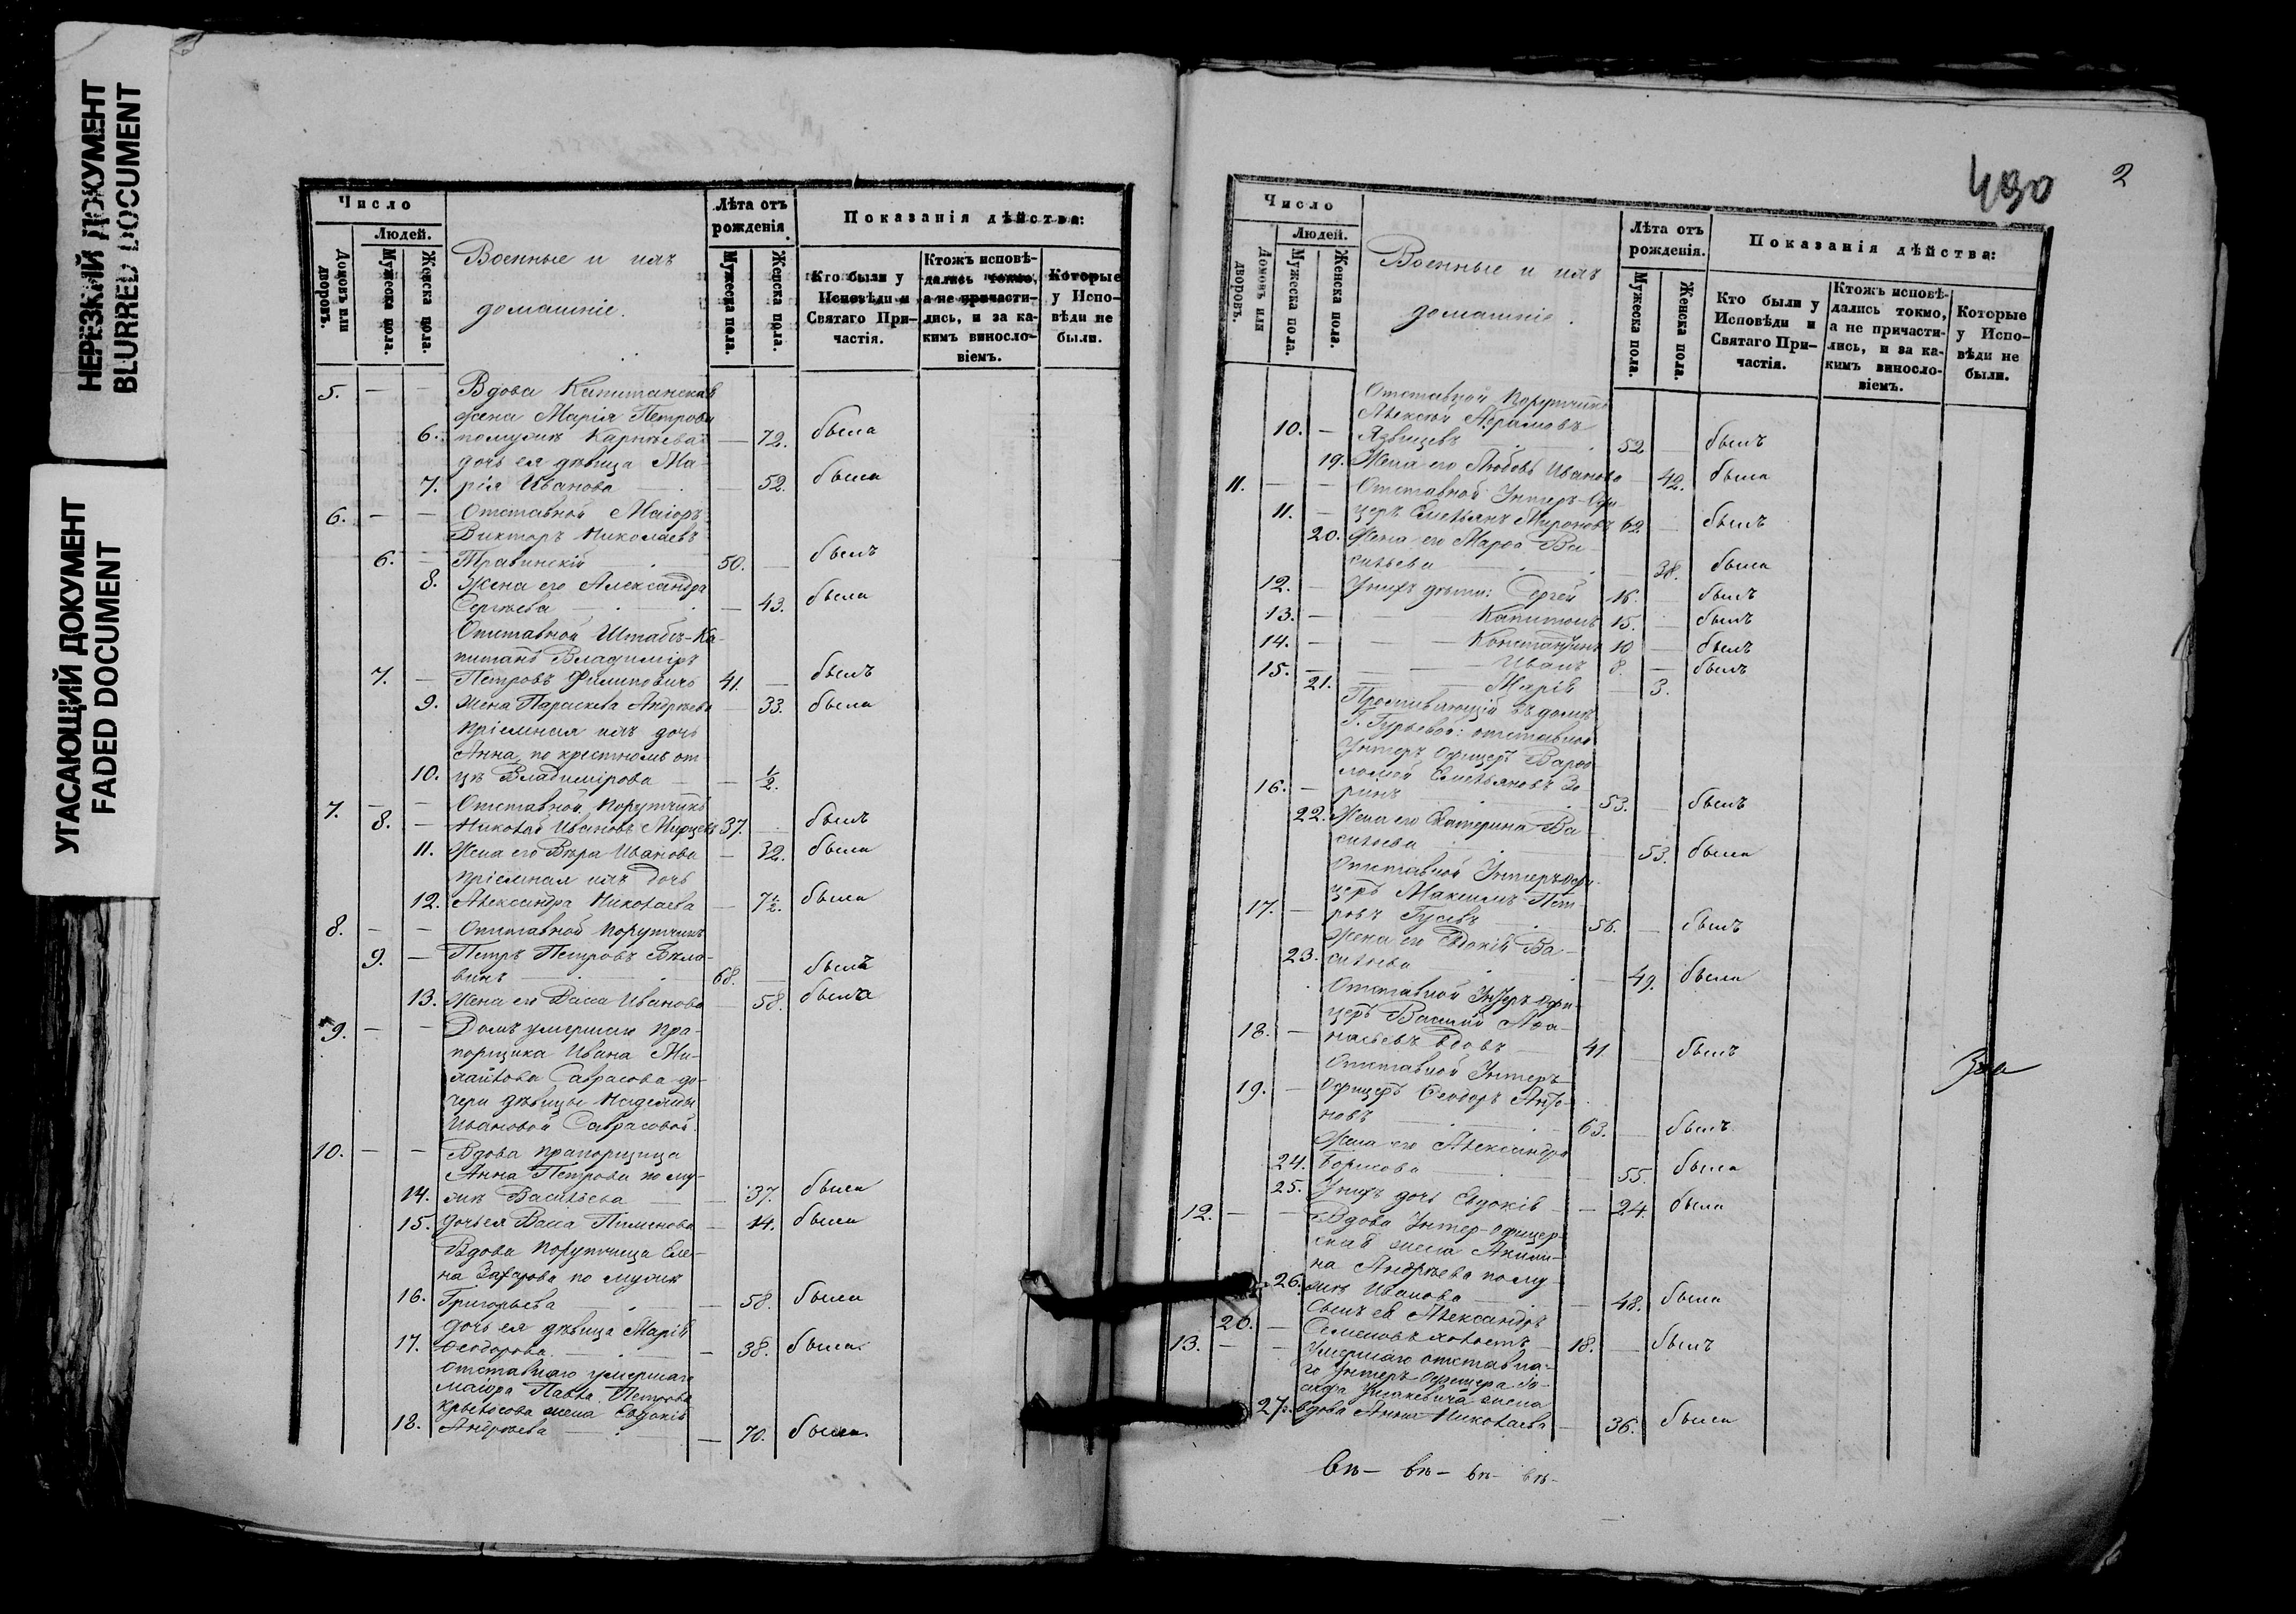 НЕРЕЗКИЙ ДОКУМЕНТ
BLURRED DOCUMENT
УГАСАЮЩИЙ ДОКУМЕНТ
FADED DOCUMENT
Число
Людей.
Домовъ или дворовъ.
Мужеска пола.
Женска пола.
Военные и ихъ
домашніе.
Лѣта отъ рожденія.
Мужеска пола.
Женска пола.
Показанія дѣйства:
Кто были у Исповѣди и Святаго При-частія.
Ктожъ исповѣ-дались токмо, а не причасти-лись, и за ка-кимъ винosло-віемъ.
Которые у Испо-вѣди не были.
5. — — Вдова Капитанская
жена Марія Петрова
6. помужѣ Карнѣева — 72. была
дочь ея дѣвица Ма-
7. рія Иванова — 52. была
6. — — Отставной Маіоръ
Викторъ Николаевъ
6. — Травинскій 50. — былъ
8. Жена его Александра
Сергѣева — 43. была
Отставной Штабсъ-Ка-
питанъ Владиміръ
7. — Петровъ Филиповичъ 41. — былъ
9. Жена Параскева Андреева — 33. была
Пріемная ихъ дочь
Анна, по крестномъ от-
10. цѣ Владимірова — 1/2.
7. — — Отставной Порутчикъ
8. — Николай Ивановъ 37. — былъ
11. Жена его Вѣра Иванова — 32. была
Пріемная ихъ дочь
12. Александра Николаева — 7 1/2. была
8. — — Отставной Порутчикъ
9. — Петръ Петровъ Бѣла-
винъ 68. — былъ
13. Жена его Васа Иванова — 58. была
9. — — Домъ умершаго Пра-
порщика Ивана Ми-
хайлова Саврасова до-
чери дѣвицы Надежды
Ивановой Саврасовой.
10. — — Вдова прапорщица
Анна Петрова по му-
14. жѣ Васильева — 37. была
15. дочь ея Васа Пименова — 14. была
Вдова Порутчица Еле-
на Захарова по мужѣ
16. Григорьева — 58. была
дочь ея дѣвица Марія
17. Ѳеодорова — 38. была
отставнаго умершаго
маіора Павла Петрова
Крылосова жена Евдокія
18. Андреева — 70. была.
490
2
Число
Людей.
Домовъ или дворовъ.
Мужеска пола.
Женска пола.
Военные и ихъ
домашніе.
Лѣта отъ рожденія.
Мужеска пола.
Женска пола.
Показанія дѣйства:
Кто были у Исповѣди и Святаго При-частія.
Ктожъ исповѣ-дались токмо, а не причасти-лись, и за ка-кимъ винosло-віемъ.
Которые у Испо-вѣди не были.
Отставной Порутчикъ
Алексѣй Абрамовъ
10. — Язвицевъ 52 — былъ
19. Жена его Любовь Иванова — 42. была
11. — — Отставной Унтеръ-Офи-
11. — церъ Емельянъ Мироновъ 62. — былъ
20. Жена его Марѳа Ва-
сильева — 38. была
12. — У нихъ дѣти: Сергей 16. — былъ
13. — Капитонъ 15. — былъ
14. — Константинъ 10 — былъ
15. — Иванъ 8. — былъ
21. Марія — 3.
Проживающій въ домѣ
Г. Гурьевой: отставной
Унтеръ Офицеръ Варѳо-
ломей Емельяновъ Зо-
16. — ринъ 53. — былъ
22. Жена его Екатерина Ва-
сильева — 53. была
Отставной Унтеръ Офи-
церъ Максимъ Пет-
17. — ровъ Гусевъ 56. — былъ
Жена его Евдокія Ва-
23. сильева — 49. была
Отставной Унтеръ Офи-
церъ Василій Аѳа-
18. — насьевъ Вдовъ 41 — былъ
Отставной Унтеръ
19. — Офицеръ Ѳеодоръ Анто-
новъ 63. — былъ
Жена его Александра
24. Борисова — 55. была
25. У нихъ дочь Евдокія — 24. была
12. — — Вдова Унтер-офицер-
ская жена Акили-
на Андреева по му-
26. жѣ Иванова — 48. была
20. — Сынъ ея Александръ
Семеновъ холостъ 18. — былъ
13. — — Умершаго отставна-
го Унтеръ Офицера Іо-
сифа жена
27. вдова Анна Николаева — 36. была
вѣ — вѣ — вѣ — вѣ —